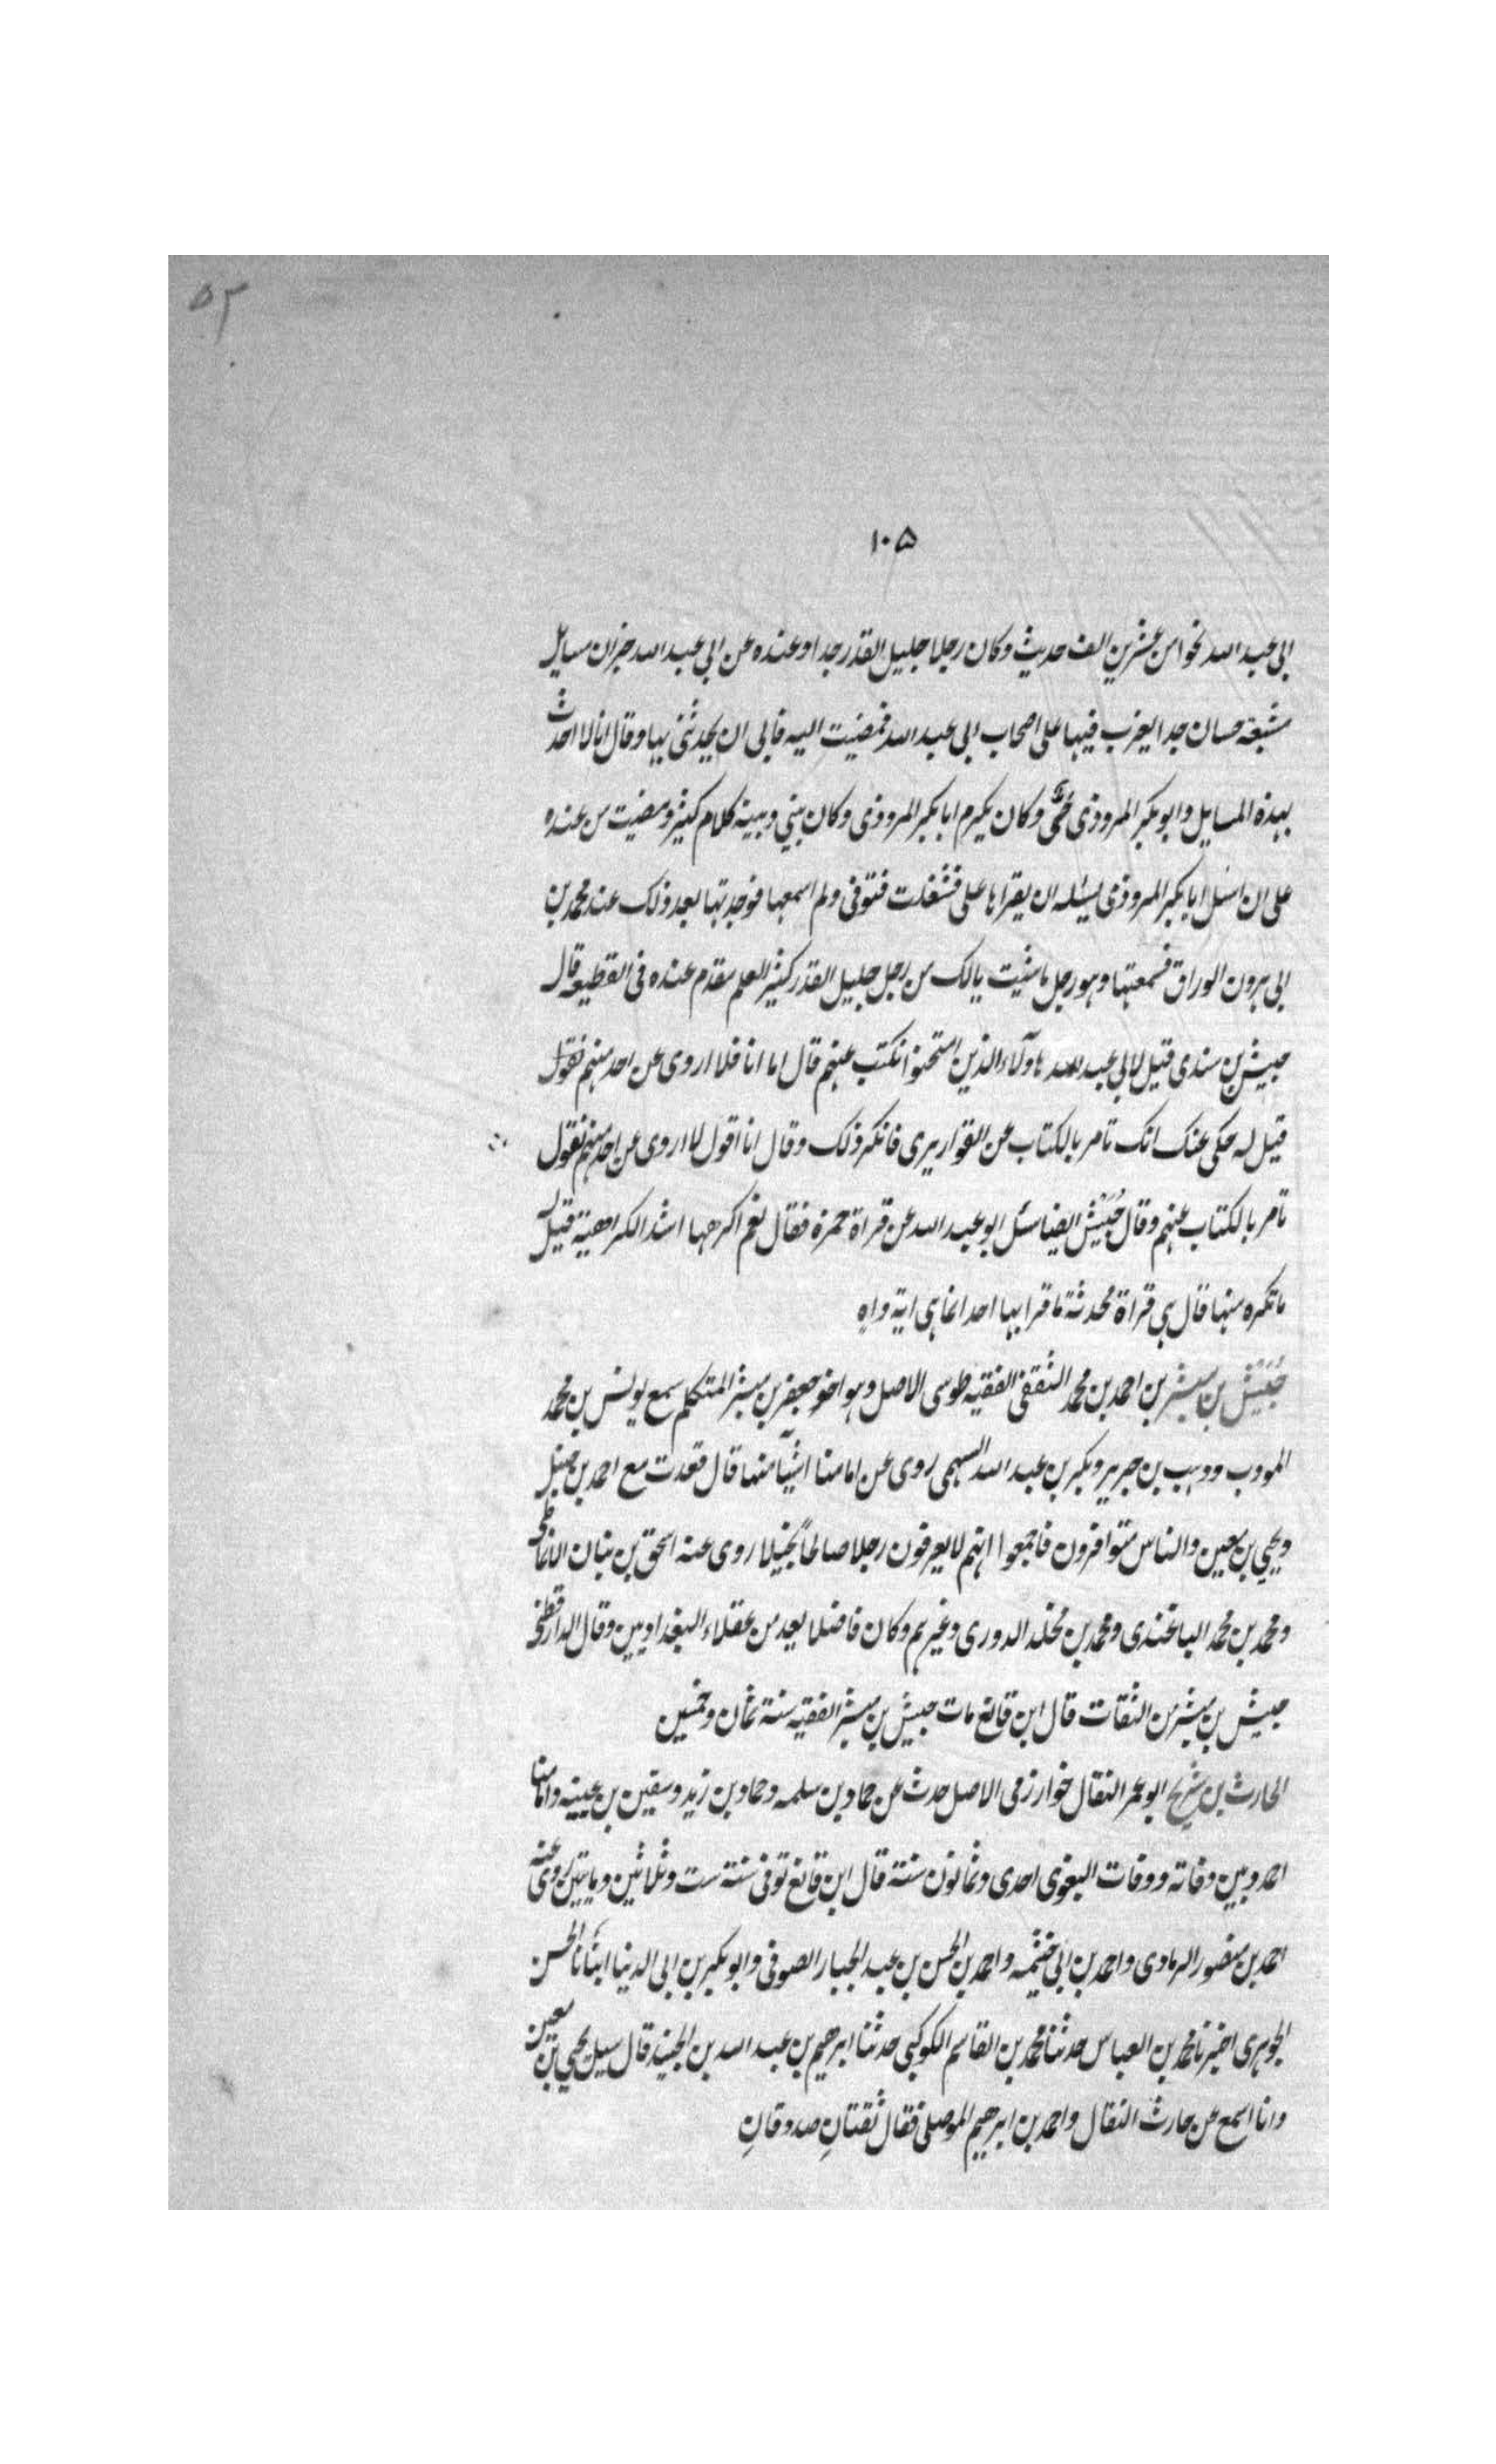 ٥٣
١٠٥
ابى عبد الله نحوا من عشرين الف حديث وكان رجلا جليل القدر جدا وعنده عن ابى عبد الله جزان مسايل
مشبعة حسان جدا يغرب فيها على اصحاب ابى عبد الله فمضيت اليه فابى ان يحدثنى بها وقال انا لا احدث
بهذه المسايل وابو بكر المروذى حى وكان يكرم ابا بكر المروذى وكان بينى وبينه كلام كثير ومضيت من عنده
على ان اسئل ابا بكر المروذى ليسئله ان يقراها على فشغلت فتوفى ولم اسمعها فوجدتها بعد ذلك عند محمد بن
ابى هرون الوراق فسمعتها وهو رجل ما شئت يالك من رجل جليل القدر كثير العلم مقدم عنده فى القطيعه قال
حبيش بن سندى قيل لابى عبد الله هاولآء الذين امتحنوا نكتب عنهم قال اما انا فلا اروى عن احد منهم نقول
قيل له حكى عنك انك تامر بالكتاب عن القواريرى فانكر ذلك وقال انا اقول لا اروى عن احد منهم نقول
تامر بالكتاب عنهم وقال حُبَيْش ايضا سئل ابو عبد الله عن قراة حمزة فقال نعم اكرهها اشد الكراهية قيل له
ما تكره منها قال هى قراة محدثة ما قرا بها احد انما هى ايه واه
حُبَيْش بن مبشر بن احمد بن محمد الثقفى الفقيه طوسى الاصل وهو اخو جعفر بن مبشر المتكلم سمع يونس بن محمد
المودب ووهب بن جرير وبكر بن عبد الله السهمى روى عن امامنا اشيآ منها قال قعدت مع احمد بن حنبل
ويحيى بن معين والناس متوافرون فاجمعوا انهم لا يعرفون رجلا صالحاً بخيلا روى عنه اسحق بن بنان الانماطى
ومحمد بن محمد الباغندى ومحمد بن مخلد الدورى وغيرهم وكان فاضلا يعد من عقلاء البغداويين وقال الدارقطنى
حبيش بن مبشر من الثقات قال ابن قانع مات حبيش بن مبشر الفقيه سنة ثمان وخمسين
الحارث بن سُريج ابو عمر النقال خوارزمى الاصل حدث عن حماد بن سلمه وحماد بن زيد وسفين بن عيينه وامامنا
احمد وبين وفاته ووفات البغوى احدى وثمانون سنة قال ابن قانع توفى سنة ست وثلاثين ومايتين روى عنه
احمد بن منصور الرمادى واحمد بن ابى خيثمه واحمد بن الحسن بن عبد الجبار الصوفى وابو بكر بن ابى الدنيا انبَانَا الحسن
الجوهرى اخبرنا محمد بن العباس حدثنا محمد بن القاسم الكوكبى حدثنا ابرهيم بن عبد الله بن الجنيد قال سيل يحيى بن معين
وانا اسمع عن حارث النقال واحمد بن ابرهيم الموصلى فقال ثقتانِ صدوقانِ